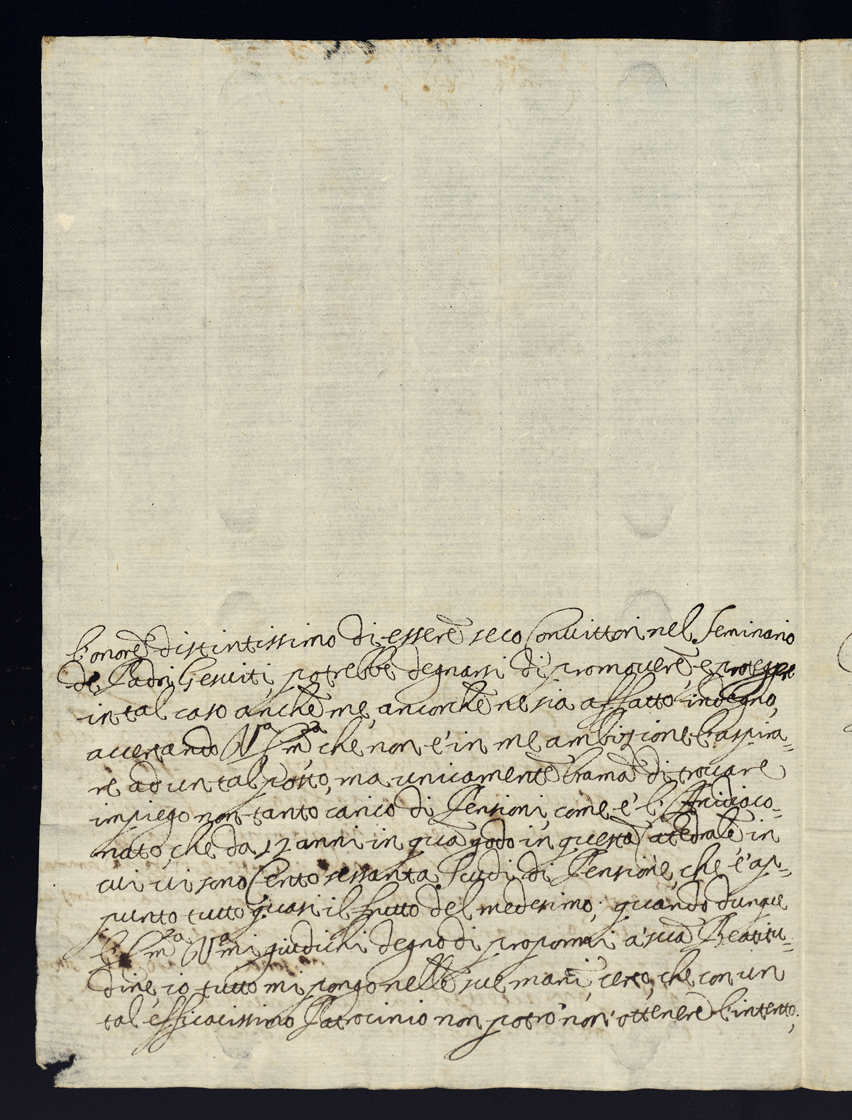 l'honore distintissimo di essere seco Convittori nel Seminario
de Padri Gesuiti, potrebbe degnarsi di promovere, e protegere
in tal caso anche me, ancorche ne sia affatto indegno,
accertando V.S. Ill.ma che non è in me ambizione l'aspira-
re ad un tal posto, ma unicamente brama di trovare
impiego non tanto carico di Pensioni, come è l'Arcidiaco-
nato, che da 17 anni in quà godo in questa Catedrale in
cui vi sono Cento sessanta Scudi di Pensione, che è ap-
punto tutto quasi il frutto del medesimo; quando dunque
V.S. Ill.ma mi giudichi degno di propormi a sua Beatitu-
dine, io tutto mi pongo nelle sue mani, certo, che con un
tal efficacissimo Patrocinio non potrò non ottenere l'intento;